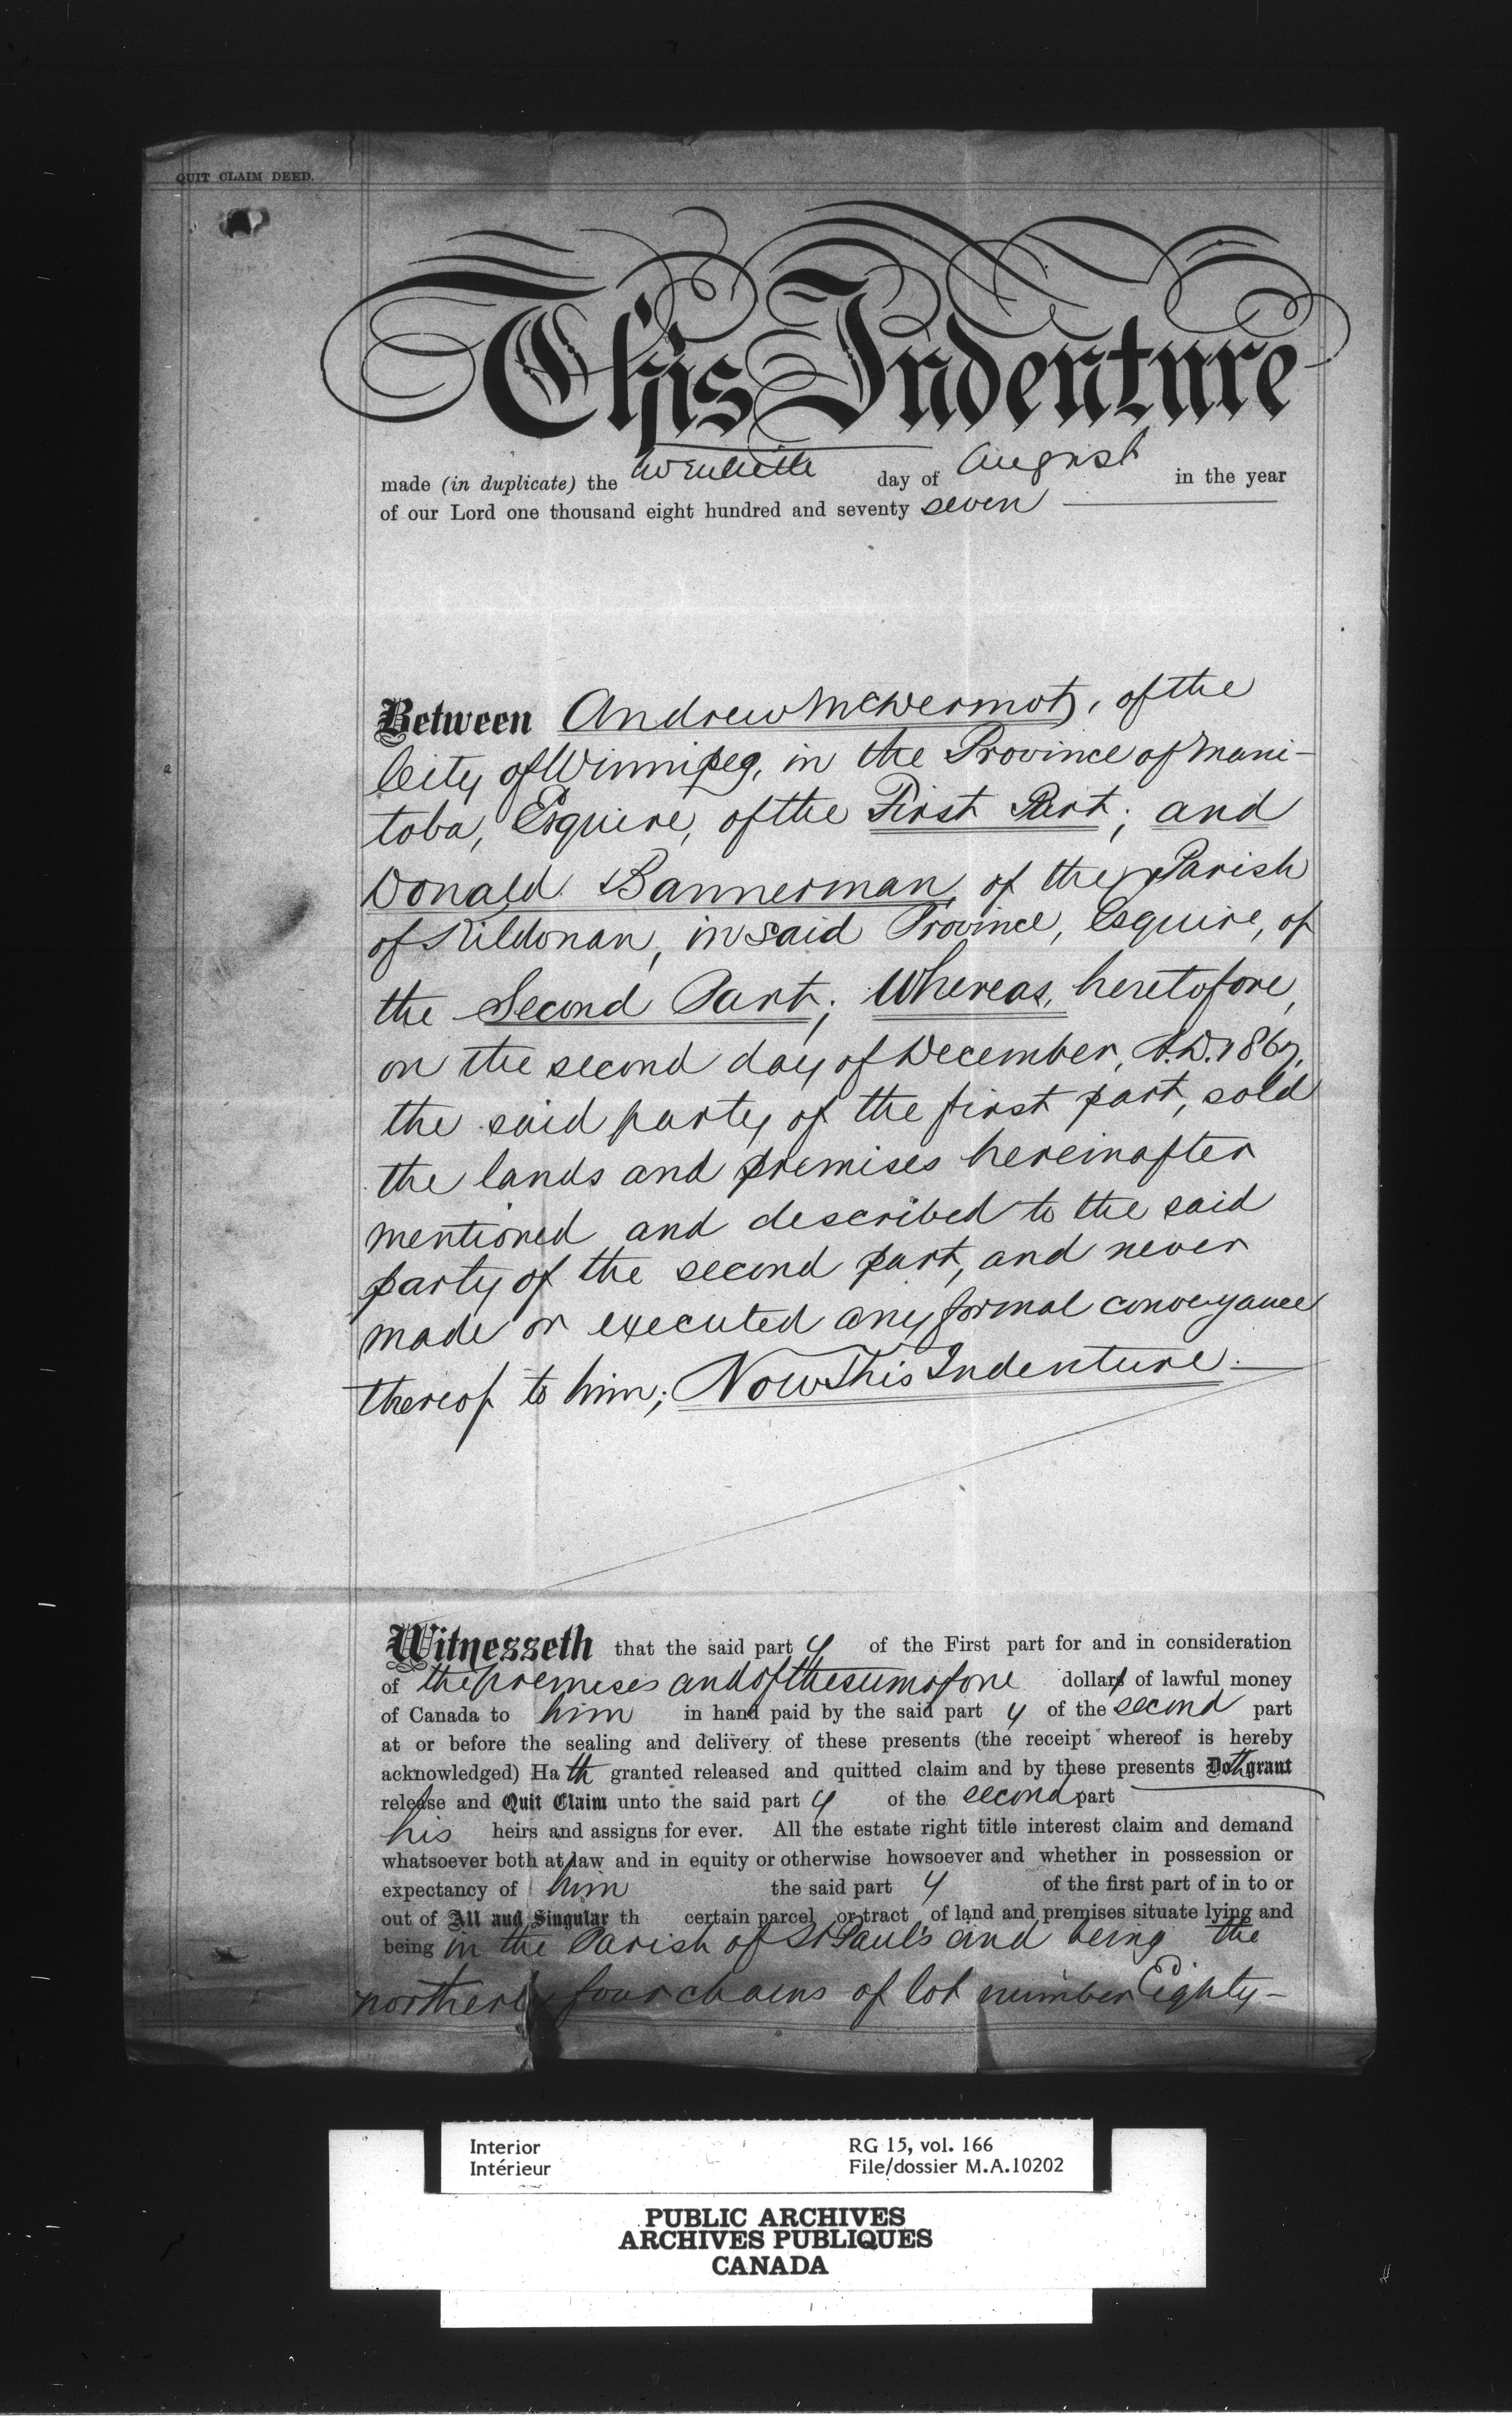 QUIT CLAIM DEED.
This Indenture
made (in duplicate) the twentieth day of August in the year
of our Lord one thousand eight hundred and seventy seven
Between Andrew McDermot, of the
City of Winnipeg, in the Province of Mani-
toba, Esquire, of the First Part; and
Donald Bannerman, of the Parish
of Kildonan, in said Province, Esquire, of
the Second Part; Whereas, heretofore,
on the second day of December, A.D. 1867,
the said party of the first part, sold
the lands and premises hereinafter
mentioned and described to the said
party of the second part, and never
made or executed any formal conveyance
thereof to him; Now This Indenture.
Witnesseth that the said part y of the First part for and in consideration
of the premises and of the sum of one dollars of lawful money
of Canada to him in hand paid by the said part y of the second part
at or before the sealing and delivery of these presents (the receipt whereof is hereby
acknowledged) Ha th granted released and quitted claim and by these presents Doth grant
release and Quit Claim unto the said part y of the second part
his heirs and assigns for ever. All the estate right title interest claim and demand
whatsoever both at law and in equity or otherwise howsoever and whether in possession or
expectancy of him the said part y of the first part of in to or
out of All and Singular th certain parcel or tract of land and premises situate lying and
being in the Parish of St Paul's and being the
northerly four chains of lot number Eighty-
Interior RG 15, vol. 166
Intérieur File/dossier M.A.10202
PUBLIC ARCHIVES
ARCHIVES PUBLIQUES
CANADA